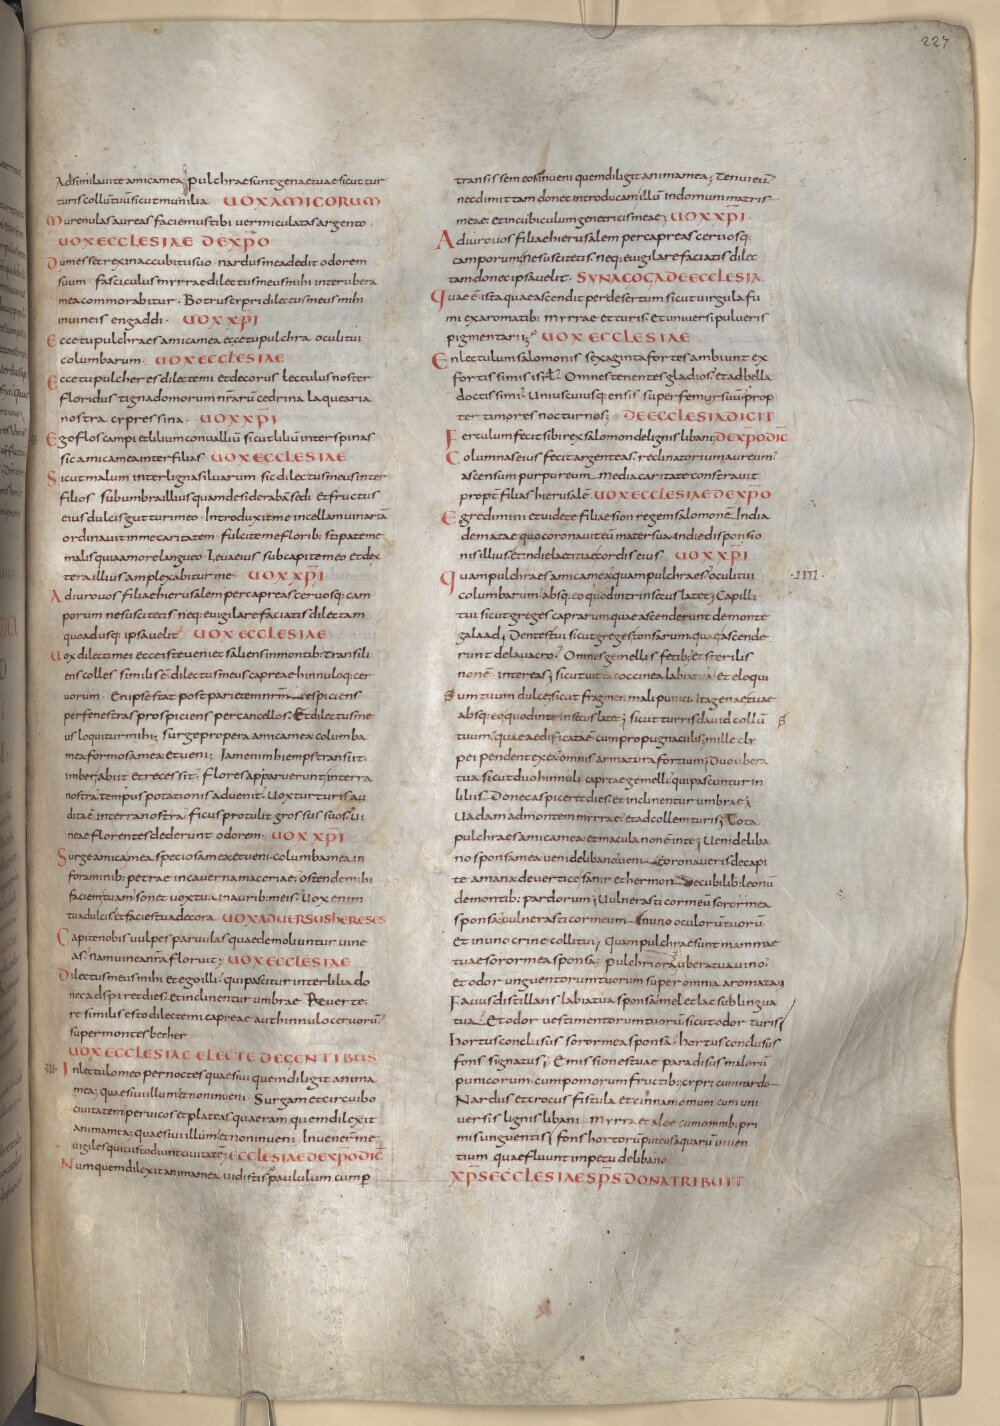 227
Adsimilavi te amica mea; pulchrae sunt genae tuae sicut tur
turis collũ tuũ sicut munilia UOX AMICORUM
Murenulas aureas faciemus tibi vermiculatas argento
UOX ECCLESIAE DE XP̄O
Dum esset rex in accubitu suo. nardus mea dedit odorem
suum. fasciculus myrrae dilectus meus mihi inter ubera
mea commorabitur. Botrus cypri dilectus meus mihi
in vineis engaddi. UOX XP̄I
Ecce tu pulchra es amica mea ecce tu pulchra oculi tui
columbarum. UOX ECCLESIAE
Ecce tu pulcher es dilecte mi et decorus Lectulus noster
floridus tigna domorum nr̄arũ cedrina laquearia
nostra cypressina. UOX XP̄I
Ego flos campi et lilium convalliũ sicut liliũ inter spinas
sic amica mea inter filias UOX ECCLESIAE
Sicut malum inter ligna silvarum sic dilectus meus inter
filios sub umbra illius quam desiderabã sedi et fructus
eius dulcis gutturi meo. Introduxit me in cellam vinariã
ordinavit in me caritatem. fulcite me florib: stipate me
malis quia amore langueo. Leva eius sub capite meo et dex
tera illius amplexabitur me. UOX XP̄I
Adiuro vos filiae hierusalem per capreas cervosq: cam
porum ne suscitetis neq: evigilare faciatis dilectam
quoadusq: ipsa velit UOX ECCLESIAE
Vox dilecti mei ecce iste venit et saliens in montib: transili
ens colles similis ē dilectus meus capreae hinnuloq: cer
vorum. En ipse stat post parietem nrm̄ respiciens
per fenestras prospiciens per cancellos. Et dilectus me
us loquitur mihi; surge propera amica mea columba
mea formosa mea et veni; Iam enim hiemps transiit.
imber abiit et recessit. flores apparverunt in terra
nostra tempus potationis advenit. Vox turturis au
dita ē in terra nostra ficus protulit grossus suos. Vi
neae florentes dederunt odorem. UOX XP̄I
Surge amica mea speciosa mea et veni. columba mea in
foraminib: petrae in caverna maceriae. ostende mihi
faciem tuam sonet vox tua in aurib: meis. Vox enim
tua dulcis et facies tua decora. UOX ADVERSUS HERESES
Capite nobis vulpes parvulas quae demoliuntur vine
as. nam vinea nr̄a floruit; UOX ECCLESIAE
Dilectus meus mihi et ego illi. qui pascitur inter lilia do
nec adspiret dies. et inclinentur umbrae Reverte.
re similis esto dilecte mi capreae aut hinnulo cervorũ
super montes bether
UOX ECCLESIAE ELECTE DE GENTIBUS
III. In lectulo meo per noctes quaesivi quem diligit anima
mea; quaesivi illum et non inveni. Surgam et circuibo
civitatem per vicos et plateas quaeram quem dilexit
anima mea; quaesivi illum et non inveni. Invener̄ me
vigiles qui custodiunt civitatẽ; ECCLESIA DE XP̄O DIC̄
Num quem dilexit anima mea vidistis paululum cum p
transissem eos inveni quem diligit anima mea; Tenui eũ
nec dimittam donec introducam illũ in domum matris
meae et in cubiculum genetricis meae; UOX XP̄I
Adiuro vos filiae hierusalem per capreas cervosq:
camporum ne suscitetis neq: evigilare faciatis dilec
tam donec ipsa velit. SYNAGOGA DE ECCLESIA
Quae ē ista quae ascendit per desertum sicut virgula fu
mi ex aromatib: myrrae et turis. et universi pulveris
pigmentarii; UOX ECCLESIAE
En lectulum salomonis sexaginta fortes ambiunt ex
fortissimis isrl̄. Omnes tenentes gladios. et ad bella
doctissimi. Uniuscuiusq: ensis super femur suũ prop
ter timores nocturnos; DE ECCLESIA DICIT
Ferculum fecit sibi rex salomon de lignis libani; DE XP̄O DIC̄
Columnas eius fecit argenteas. reclinatorium aureum
ascensum purpureum. Media caritate constravit
propt̄ filias hierusalẽ UOX ECCLESIAE DE XP̄O
Egredimini et videte filiae sion regem salomonẽ In dia
demate quo coronavit eũ mater sua. in die disponsio
nis illius. et in die laetitiae cordis eius. UOX XP̄I
Quam pulchra es amica mea quam pulchra es. oculi tui
.IIII.
columbarum. absq: eo quod intrinsecus latet; Capilli
tui sicut greges caprarum quae ascenderunt de monte
galaad; Dentes tui sicut greges tonsarum. quae ascende
runt de lavacro. Omnes gemellis fetib: et sterilis
non ē inter eas; sicut vitta coccinea labia tua. et eloqui
um tuum dulce; sicut fragmen mali punici. ita genae tuae
absq: eo quod intrinsecus latet; sicut turris david collũ
tuum. quae aedificata ē cum propugnaculis; mille cly
pei pendent ex ea omnis armatura fortium; Duo ubera
tua sicut duo hinnuli capreae gemelli. qui pascuntur in
liliis. Donec aspiret dies. et inclinentur umbrae;
Vadam ad montem myrrae. et ad collem turis; Tota
pulchra es amica mea et macula non ē in te; Veni de liba
no sponsa mea veni de libano veni. coronaveris de capi
te amana de vertice sanir et hermon. De cubilib: leonũ
de montib: pardorum; Vulnerasti cor meũ soror mea
sponsa. vulnerasti cor meum. in uno oculorũ tuorũ
et in uno crine colli tui; Quam pulchrae sunt mammae
tuae soror mea sponsa; pulchriora ubera tua vino.
et odor unguentorum tuorum super omnia aromata;
Favus distillans labia tua sponsa. mel et lac sub lingua
tua. Et odor vestimentorum tuorũ sicut odor turis;
hortus conclusus soror mea sponsa. hortus conclusus
fons signatus; Emissiones tuae paradisus malorũ
punicorum. cum pomorum fructib:; cypri cum nardo
Nardus et crocus fistula et cinnamomum cum uni
versis lignis libani. Myrra et aloe cum omnib: pri
mis unguentis; fons hortorũ puteus aquarũ viven
tium quae fluunt impetu de libano
XP̄S ECCLESIAE SP̄S DONA TRIBUIT